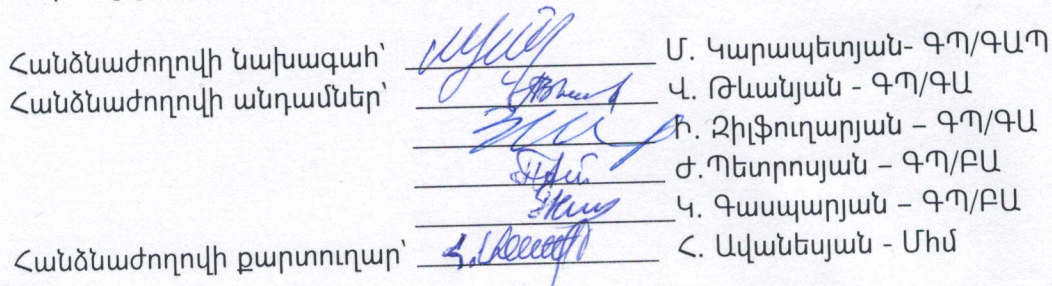 Հանձնաժողովի նախագահ՝ Մ. Կարապետյան- ԳՊ/ԳԱՊ
Հանձնաժողովի անդամներ՝ Վ. Թևանյան - ԳՊ/ԳԱ
Ի. Զիլֆուղարյան – ԳՊ/ԳԱ
Ժ. Պետրոսյան – ԳՊ/ԲԱ
Կ. Գասպարյան – ԳՊ/ԲԱ
Հանձնաժողովի քարտուղար՝ Հ. Ավանեսյան - Մհմ